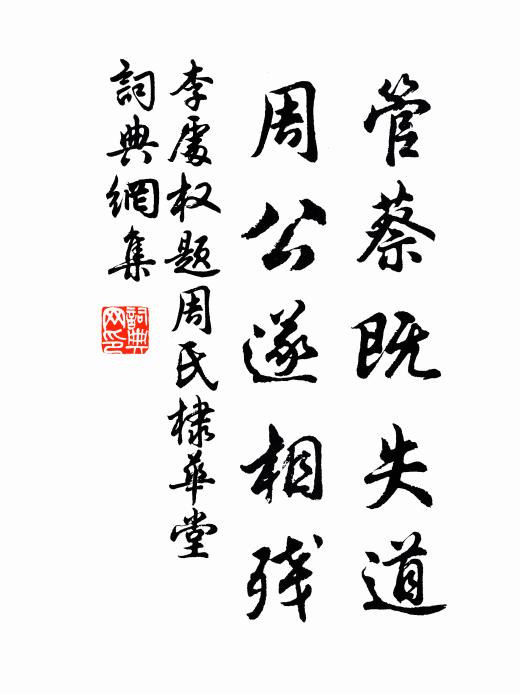 管蔡既失道
周公遂相残
李處权题周氏棣华堂
詞典網集
詞典
网印